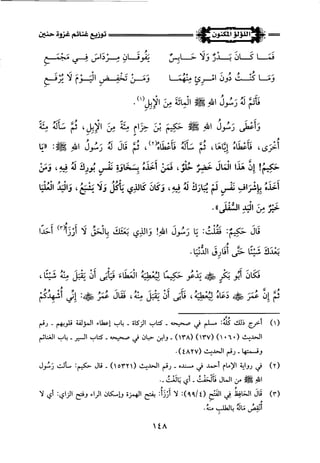 اللؤلؤ المكنون
توزيع غنائم غزوة حنين
فَمَا كَانَ بَدْرٌ وَلَا حَابِسٌ يَفُوقَانِ مِرْدَاسَ فِي مَجْمَعِ
وَمَا كُنْتُ دُونَ امْرِئٍ مِنْهُمَا وَمَنْ تَخْفِضِ الْيَوْمَ لَا يُرْفَعِ
فَأَتَمَّ لَهُ رَسُولُ اللهِ ﷺ الْمِائَةَ مِنَ الْإِبِلِ(١).
وَأَعْطَى رَسُولُ اللهِ ﷺ حَكِيمَ بْنَ حِزَامٍ مِئَةً مِنَ الْإِبِلِ، ثُمَّ سَأَلَهُ مِئَةً
أُخْرَى، فَأَعْطَاهُ إِيَّاهَا، ثُمَّ سَأَلَهُ فَأَعْطَاهُ(٢)، ثُمَّ قَالَ لَهُ رَسُولُ اللهِ ﷺ: «يَا
حَكِيمُ! إِنَّ هَذَا الْمَالَ خَضِرٌ حُلْوٌ، فَمَنْ أَخَذَهُ بِسَخَاوَةِ نَفْسٍ بُورِكَ لَهُ فِيهِ، وَمَنْ
أَخَذَهُ بِإِشْرَافِ نَفْسٍ لَمْ يُبَارَكْ لَهُ فِيهِ، وَكَانَ كَالَّذِي يَأْكُلُ وَلَا يَشْبَعُ، وَالْيَدُ الْعُلْيَا
خَيْرٌ مِنَ الْيَدِ السُّفْلَى».
قَالَ حَكِيمٌ: فَقُلْتُ: يَا رَسُولَ اللهِ! وَالَّذِي بَعَثَكَ بِالْحَقِّ لَا أَرْزَأُ(٣) أَحَدًا
بَعْدَكَ شَيْئًا حَتَّى أُفَارِقَ الدُّنْيَا.
فَكَانَ أَبُو بَكْرٍ ﷺ يَدْعُو حَكِيمًا لِيُعْطِيَهُ الْعَطَاءَ فَيَأْبَى أَنْ يَقْبَلَ مِنْهُ شَيْئًا،
ثُمَّ إِنَّ عُمَرَ ﷺ دَعَاهُ لِيُعْطِيَهُ، فَأَبَى أَنْ يَقْبَلَ مِنْهُ، فَقَالَ عُمَرُ ﷺ: إِنِّي أُشْهِدُكُمْ
(١) أخرج ذلك كُلَّهُ: مسلم في صحيحه - كتاب الزكاة - باب إعطاء المؤلفة قلوبهم - رقم
الحديث (١٠٦٠) (١٣٧) (١٣٨) - وابن حبان في صحيحه - كتاب السير - باب الغنائم
وقسمتها - رقم الحديث (٤٨٢٧).
(٢) وفي رواية الإمام أحمد في مسنده - رقم الحديث (١٥٣٢١) - قال حكيم: سألت رسول
الله ﷺ من المال فَأَلْحَفْتُ. أي: بَالَغْتُ.
(٣) قال الحافظ في الفتح (٩٩/٤): لا أَرْزَأُ: بفتح الهمزة وإسكان الراء وفتح الزاي: أي لا
أُنْقِصُ مَالَهُ بالطلب منه.
١٤٨